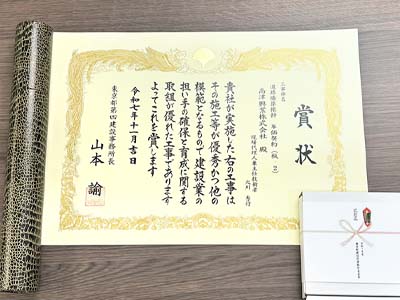 賞状
工事件名
高津興業株式会社 殿
現場代理人兼主任技術者
貴社が実施した右の工事は
その施工等が優秀かつ他の
模範となるもので建設業の
担い手の確保と育成に関する
取組が優れた工事であります
よってこれを賞します
令和七年十一月吉日
東京都第四建設事務所長
山本 諭